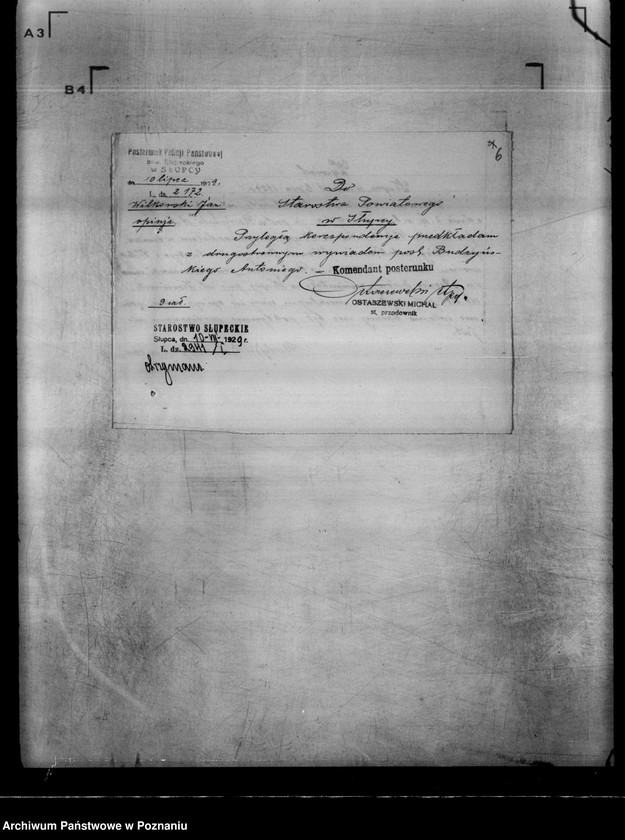 A3
B4
6
Posterunek Policji Państwowej
pow. Słupeckiego
w SŁUPCY
10 lipca 1929.
L. dz. 2172
Wilkowski Jan
opinja
Do
Starostwa Powiatowego
w Słupcy
Przyległą korespondencję przedkładam
z drugostronnym wywiadem post. Budzyńs-
kiego Antoniego. —
Komendant posterunku
OSTASZEWSKI MICHAŁ
st. przodownik
9 zał.
STAROSTWO SŁUPECKIE
Słupca, dn. 10-VII- 1929 r.
L. dz. 2941/I
Archiwum Państwowe w Poznaniu